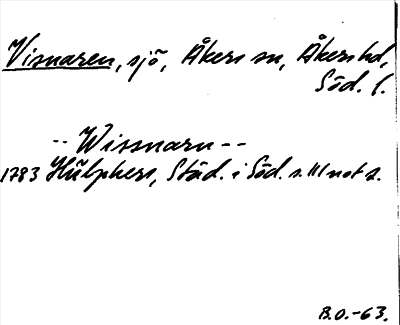 Visnaren, sjö, Åkers sn, Åkers hd,
Söd. l.
-- Wisnarn --
1783 Hülphers, Städ. i Söd. s. 111 not s.
B.O.-63.